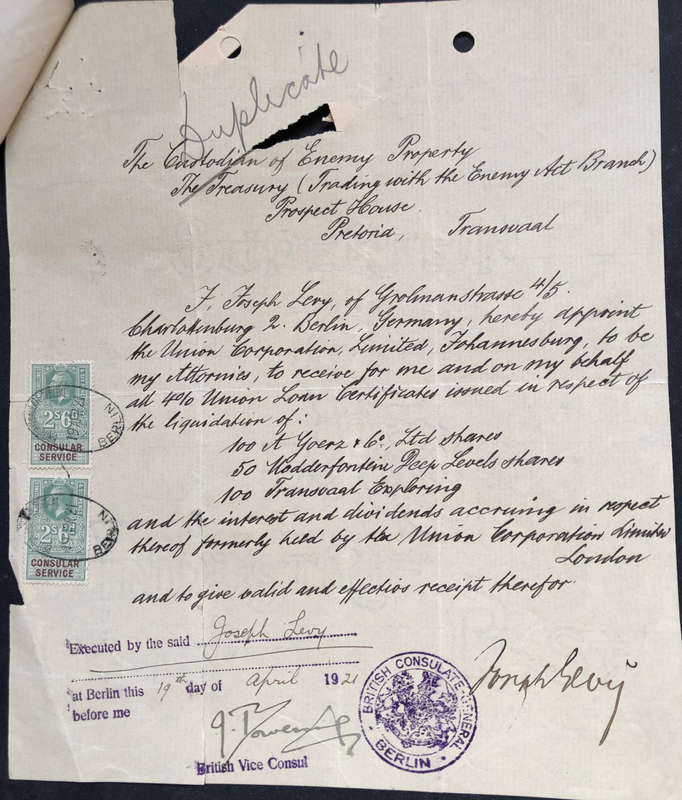 Duplicate
The Custodian of Enemy Property
The Treasury (Trading with the Enemy Act Branch)
Prospect House.
Pretoria, Transvaal
I, Joseph Levy, of Grolmanstrasse 4/5.
Charlottenburg 2. Berlin, Germany, hereby appoint
the Union Corporation, Limited, Johannesburg, to be
my Attornies, to receive for me and on my behalf
all 4% Union Loan Certificates issued in respect of
the liquidation of:
100 A Goerz & Co, Ltd shares
50 Modderfontein Deep Levels shares
100 Transvaal Exploring
and the interest and dividends accruing in respect
thereof formerly held by the Union Corporation Limited
London
and to give valid and effective receipt therefor.
2S 6D
CONSULAR
SERVICE
BERLIN
2S 6D
CONSULAR
SERVICE
BERLIN
Executed by the said Joseph Levy
at Berlin this 19th day of April 1921
before me
British Vice Consul
BRITISH CONSULATE-GENERAL
BERLIN
Joseph Levy